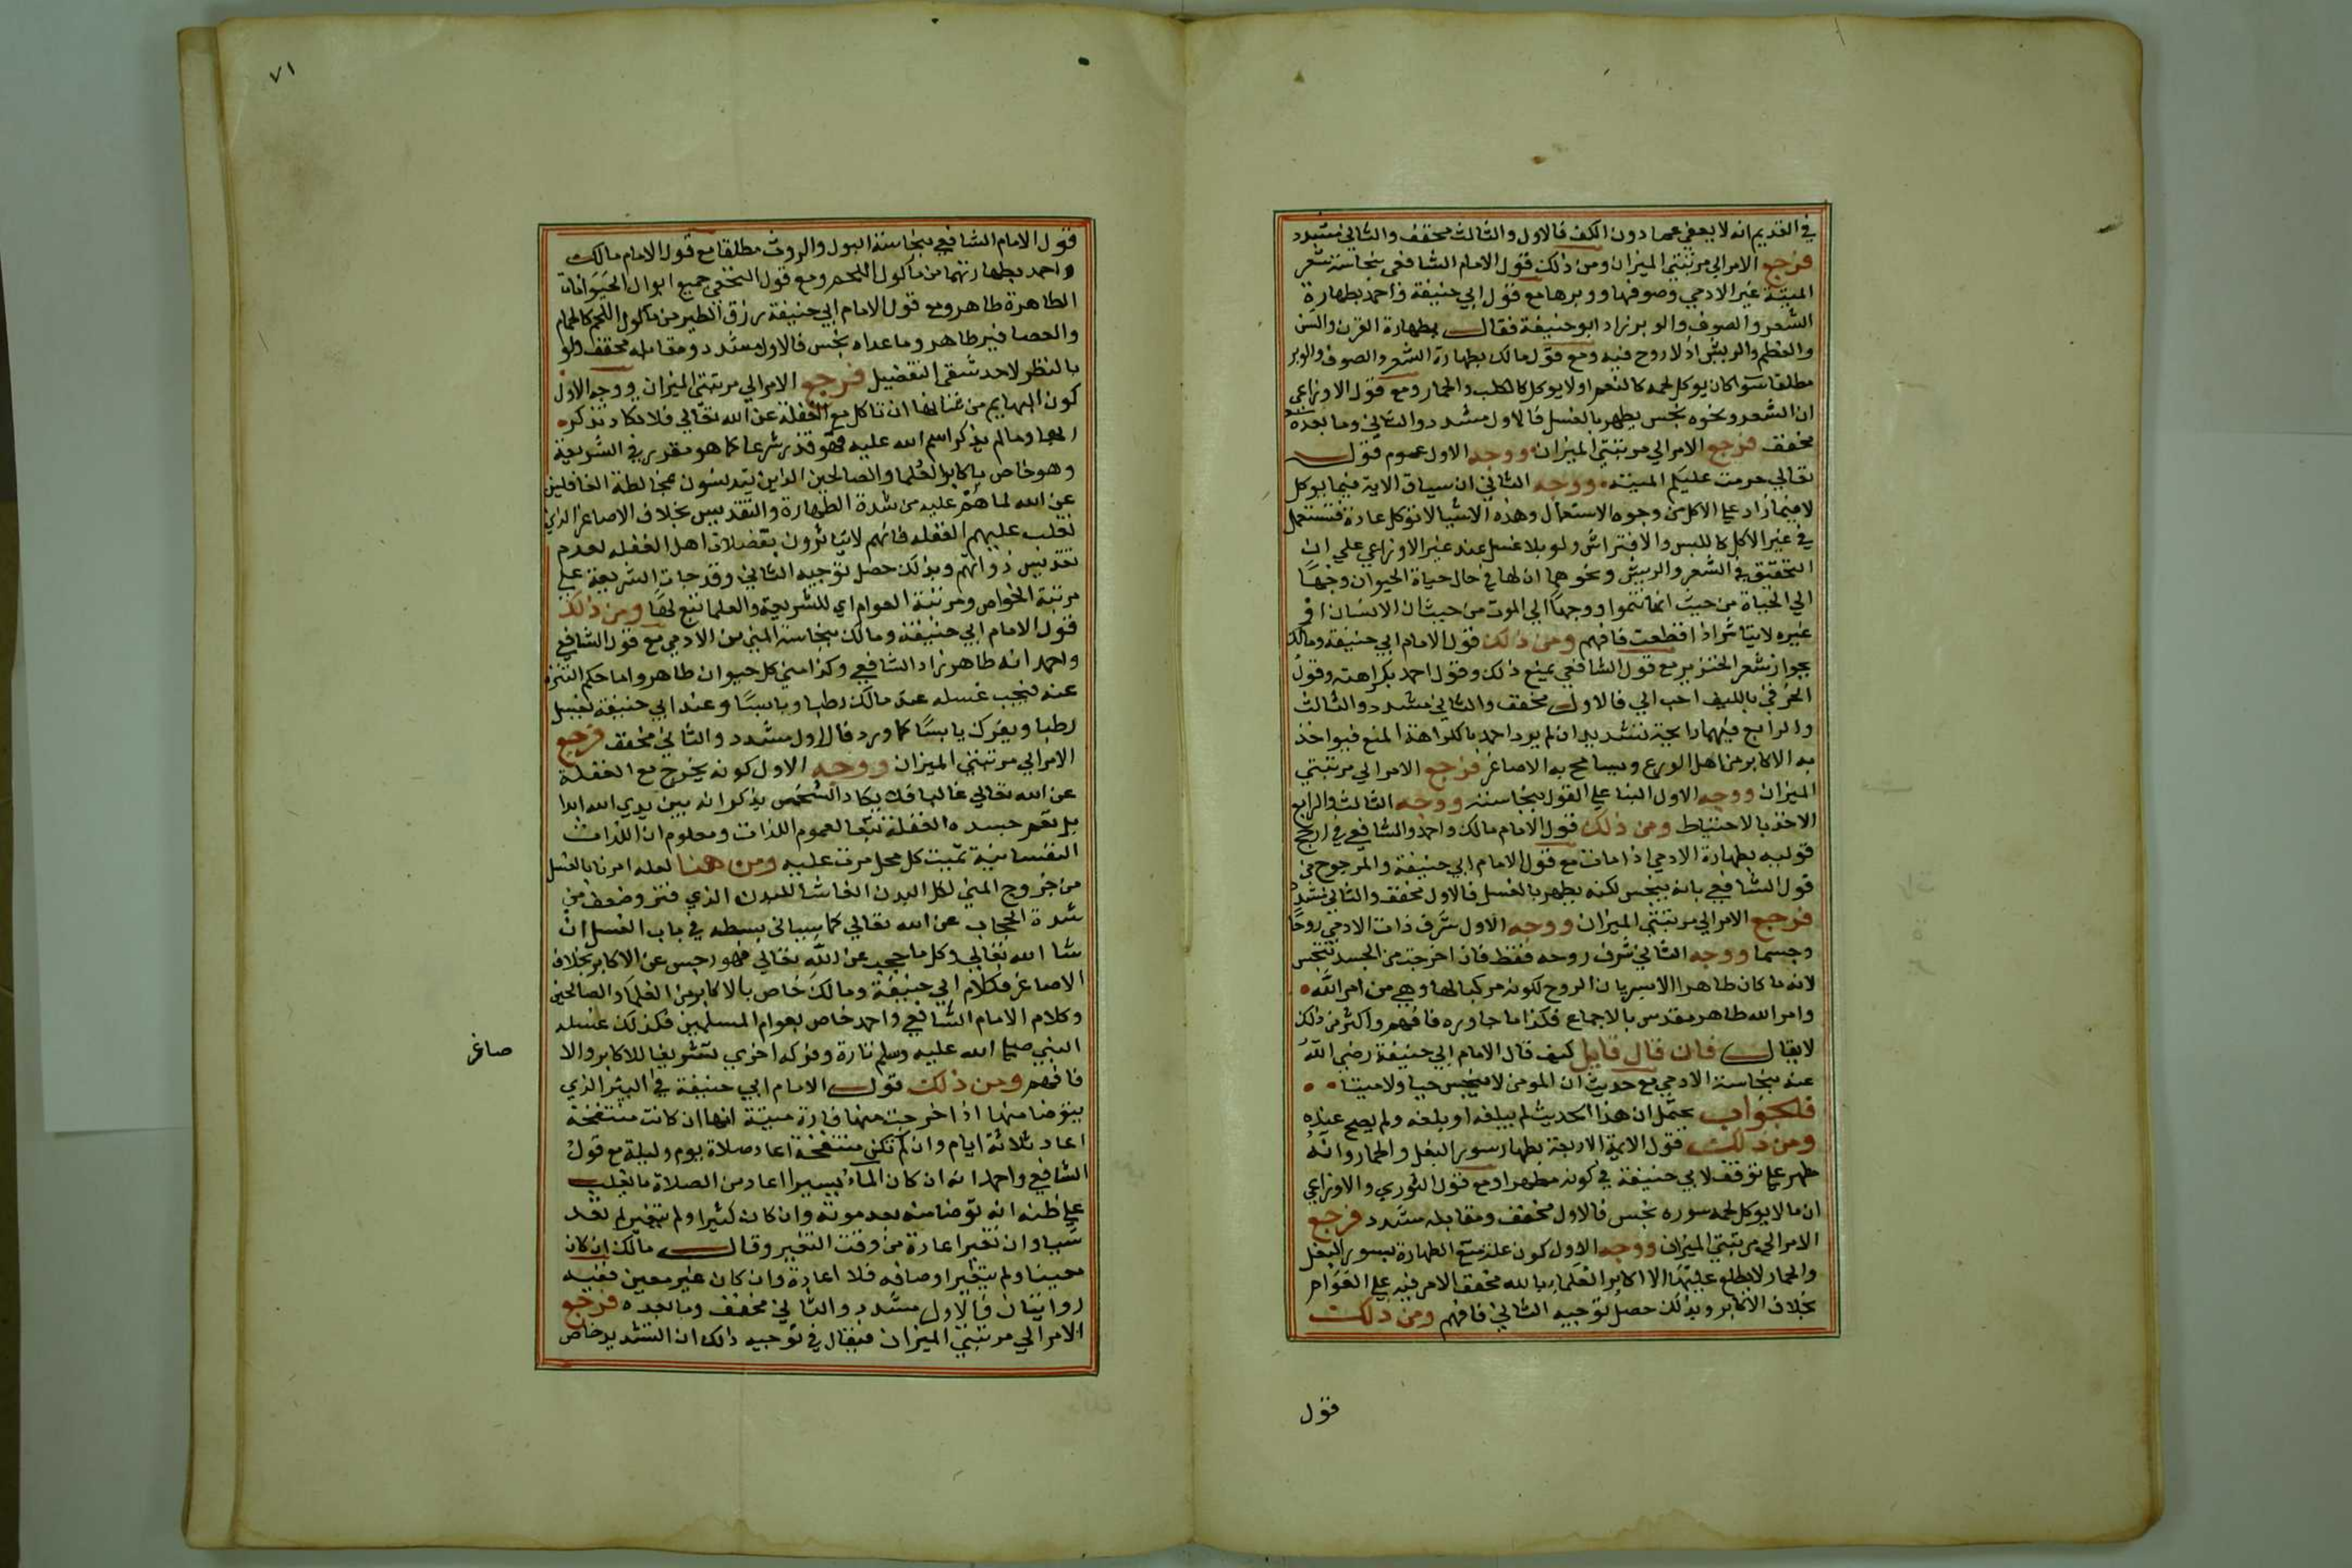 في القديم انه لا يعفى عما دون الكف فالاول والثالث مخفف والثاني مشدد
فرجع الامر الي مرتبتي الميزان ومن ذلك قول الامام الشافعي بنجاسة شعر
الميتة غير الادمي وصوفها ووبرها مع قول ابي حنيفة واحمد بطهارة
الشعر والصوف والوبر زاد ابو حنيفة فقال بطهارة القرن والسن
والعظم والريش اذ لا روح فيه ومع قول مالك بطهارة الشعر والصوف والوبر
مطلقا سوا كان يوكل لحمه كالنعم او لا يوكل كالكلب والحمار ومع قول الاوزاعي
ان الشعر ونحوه نجس يطهر بالغسل فالاول مشدد والثاني وما بعده
مخفف فرجع الامر الي مرتبتي الميزان ووجه الاول عموم قول
تعالي حرمت عليكم الميتة ووجه الثاني ان سياق الاية فيما يوكل
لا فيما زاد علي الاكل من وجوه الاستعمال وهذه الاشيا لا توكل عادة فتستعمل
في غير الاكل كاللبس والافتراش ولو بلا غسل عند غير الاوزاعي علي ان
التحقيق في الشعر والريش ونحوهما ان لها في حال حياة الحيوان وجها
الي الحياة من حيث انها تنموا ووجها الي الموت من حيث ان الانسان او
غيره لا يتاثر اذا قطعت فافهم ومن ذلك قول الامام ابي حنيفة ومالك
بجواز شعر الخنزير مع قول الشافعي بمنع ذلك وقول احمد بكراهته وقول
الخرقي بالليف احب الي فالاول مخفف والثاني مشدد والثالث
والرابع فيهما رايحة تشديد ان لم يرد احمد بالكراهة المنع فيواخذ
به الاكابر من اهل الورع ويسامح به الاصاغر فرجع الامر الي مرتبتي
الميزان ووجه الاول البنا علي القول بنجاسته ووجه الثالث والرابع
الاخذ بالاحتياط ومن ذلك قول الامام مالك واحمد والشافعي في ارجح
قوليه بطهارة الادمي اذا مات مع قول الامام ابي حنيفة والمرجوح من
قول الشافعي بانه ينجس لكنه يطهر بالغسل فالاول مخفف والثاني مشدد
فرجع الامر الي مرتبتي الميزان ووجه الاول شرف ذات الادمي روحا
وجسما ووجه الثاني شرف روحه فقط فاذا خرجت من الجسد تنجس
لانه ما كان طاهرا الا لسريان الروح لكونه مركبا لها وهي من امر الله
وامر الله طاهر مقدس بالاجماع فكذا ما جاوره فافهم واكثر من ذلك
لا يقال فان قال قايل كيف قال الامام ابي حنيفة رضي الله
عنه بنجاسة الادمي مع حديث ان المومن لا ينجس حيا ولا ميتا
فالجواب يحتمل ان هذا الحديث لم يبلغه او بلغه ولم يصح عنده
ومن ذلك قول الايمة الاربعة بطهار سور البغل والحمار وانه
طهر علي توقف لابي حنيفة في كونه مطهرا ومع قول الثوري والاوزاعي
ان ما لا يوكل لحمه سوره نجس فالاول مخفف ومقابله مشدد فرجع
الامر الي مرتبتي الميزان ووجه الاول كون علة منع الطهارة بسور البغل
والحمار لا يطلع عليها الا اكابر العلماء بالله مخفف الامر فيه علي العوام
بخلاف الاكابر وبذلك حصل توجيه الثاني فافهم ومن ذلك
قول
٧١
قول الامام الشافعي بنجاسة البول والروث مطلقا مع قول الامام مالك
واحمد بطهارتهما من ماكول اللحم ومع قول النخعي جميع ابوال الحيوانات
الطاهرة طاهر ومع قول الامام ابي حنيفة بزرق الطير من ماكول اللحم كالحمام
والعصافير طاهر وما عداه نجس فالاول مشدد ومقابله مخفف ولو
بالنظر لاحد شقي التفضيل فرجع الامر الي مرتبتي الميزان ووجه الاول
كون البهايم من شانها ان تاكل مع الغفلة عن الله تعالي فلا تكاد تذكره
ابدا وما لم يذكر اسم الله عليه فهو قذر شرعا كما هو مقرر في الشريعة
وهو خاص باكابر العلما والصالحين الذين يتدنسون بمخالطة الغافلين
عن الله لما هم عليه من شدة الطهارة والتقديس بخلاف الاصاغر الذين
تغلب عليهم الغفله فانهم لا يتاثرون بفضلات اهل الغفله لعدم
تقديس ذواتهم وبذلك حصل توجيه الثاني وقد جات الشريعة علي
مرتبة الخواص ومرتبة العوام اي للشريعة والعلما تبع لها ومن ذلك
قول الامام ابي حنيفة ومالك بنجاسة المني من الادمي مع قول الشافعي
واحمد انه طاهر زاد الشافعي وكذا مني كل حيوان طاهر واما حكم التنزه
عنه فيجب غسله عند مالك رطبا ويابسا وعند ابي حنيفة يغسل
رطبا ويفرك يابسا كما ورد فالاول مشدد والثاني مخفف فرجع
الامر الي مرتبتي الميزان ووجه الاول كونه يخرج مع الغفلة
عن الله تعالي غالبا فلا يكاد الشخص يذكر انه بين يدي الله ابدا
بل تعم جسده الغفلة تبعا لعموم اللذات ومعلوم ان اللذات
النفسانية تميت كل محل مرت عليه ومن هنا لعله امرنا بالغسل
من خروج المني لكل البدن انعاشا للبدن الذي فتر وضعف من
شدة الحجاب عن الله تعالي كما سياتي بسطه في باب الغسل ان
شا الله تعالي وكل ما حجب عن الله تعالي فهو رجس عن الاكابر بخلاف
الاصاغر فكلام ابي حنيفة ومالك خاص بالاكابر من العلما والصالحين
وكلام الامام الشافعي واحمد خاص بعوام المسلمين فكذلك غسله
النبي صلي الله عليه وسلم تارة وفركه اخري تشريفا للاكابر والا
صاغر
فافهم ومن ذلك قول الامام ابي حنيفة في البئر الذي
يتوضا منها اذا خرجت منها فارة ميتة انها ان كانت منتفخة
اعاد ثلاثة ايام وان لم تكن منتفخة اعاد صلاة يوم وليلة مع قول
الشافعي واحمد انه ان كان الماء يسيرا اعاد من الصلاة ما يغلب
علي ظنه انه توضا منه بعد موته وان كان كثيرا ولم يتغير لم يعد
شيا وان تغير اعادة من وقت التغير وقال مالك ان كان
معينا ولم يتغير اوصافه فلا اعادة وان كان غير معين ففيه
روايتان فالاول مشدد والثاني مخفف وما بعده فرجع
الامر الي مرتبتي الميزان فيقال في توجيه ذلك ان التشديد خاص